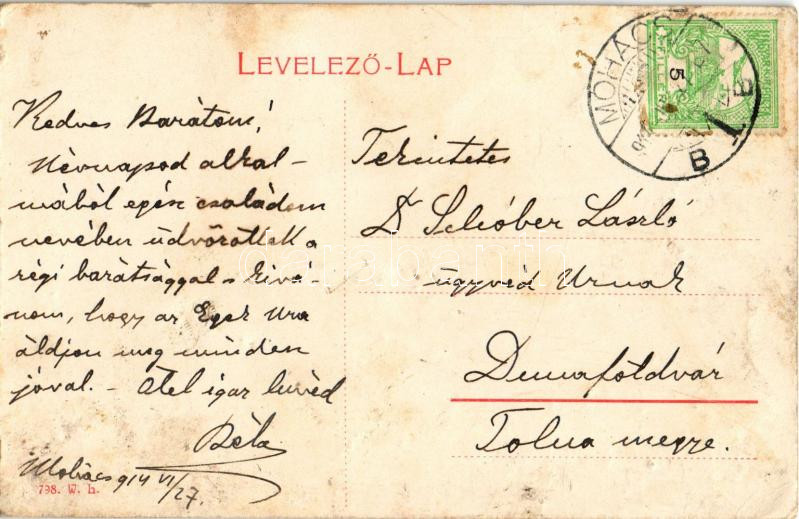 LEVELEZŐ-LAP
Kedves Barátom!
Névnapod alkal-
mából egész családom
nevében üdvözöllek a
régi barátsággal s kivá-
nom, hogy az Egek Ura
áldjon meg minden
jóval. – Ölel igaz hived
Béla
Mohács 914 VI/27.
798. W. L.
MOHÁCS
B
1
5
Tekintetes
Dr Schóber László
ügyvéd Urnak
Dunaföldvár
Tolna megye.